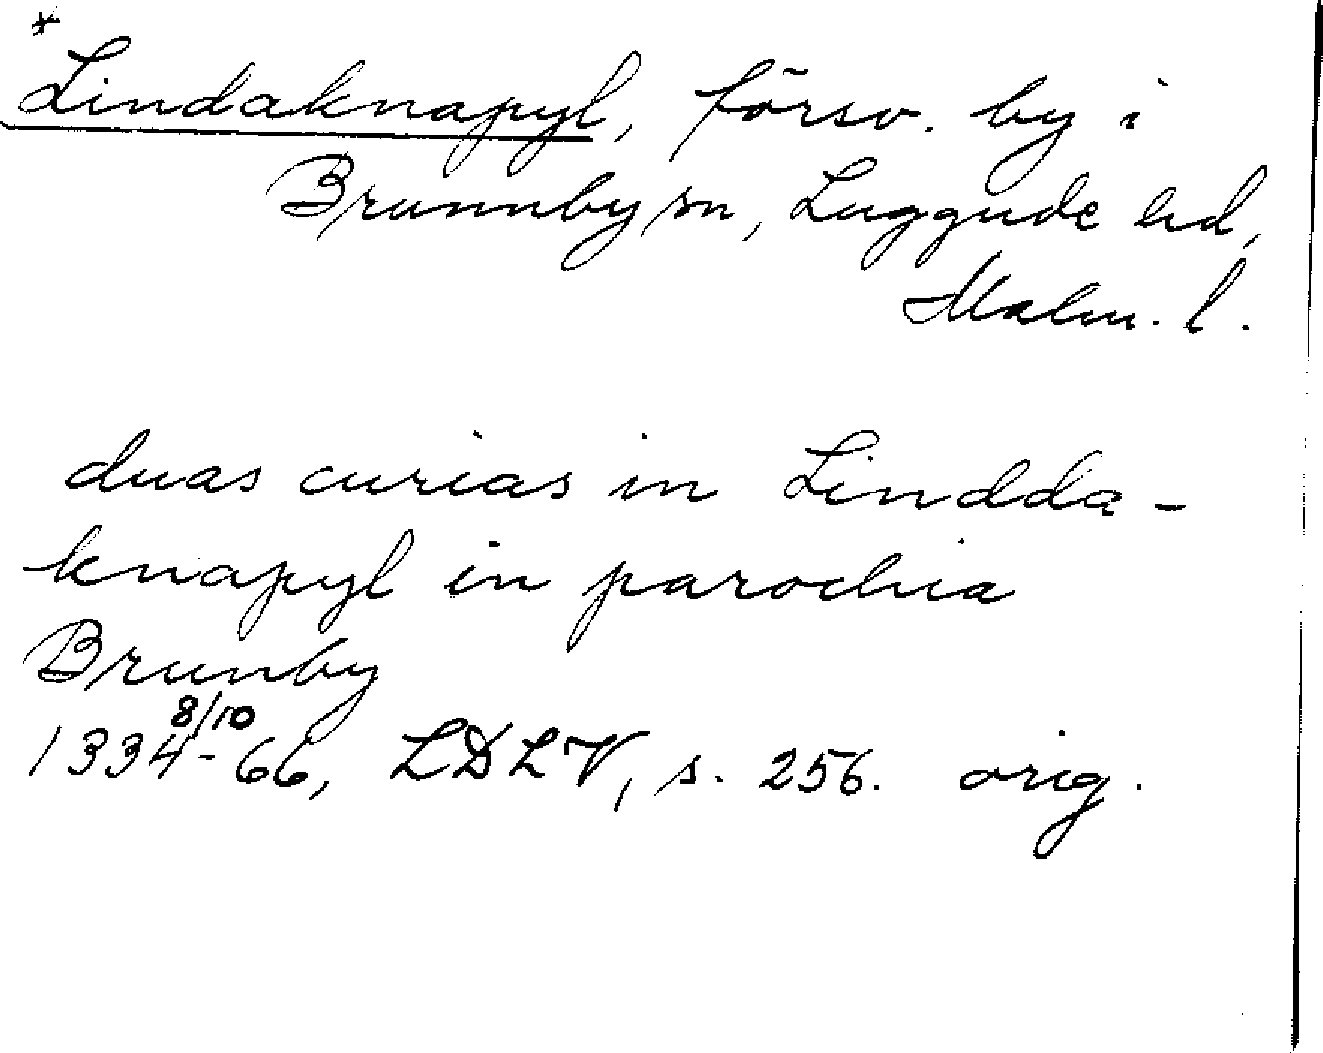 *
Lindaknapyl, försv. by i
Brunnby sn, Luggude hd,
Malm. l.
duas curias in Lindda-
knapyl in parochia
Brunby
8/10
1334-66, LDLV, s. 256. orig.